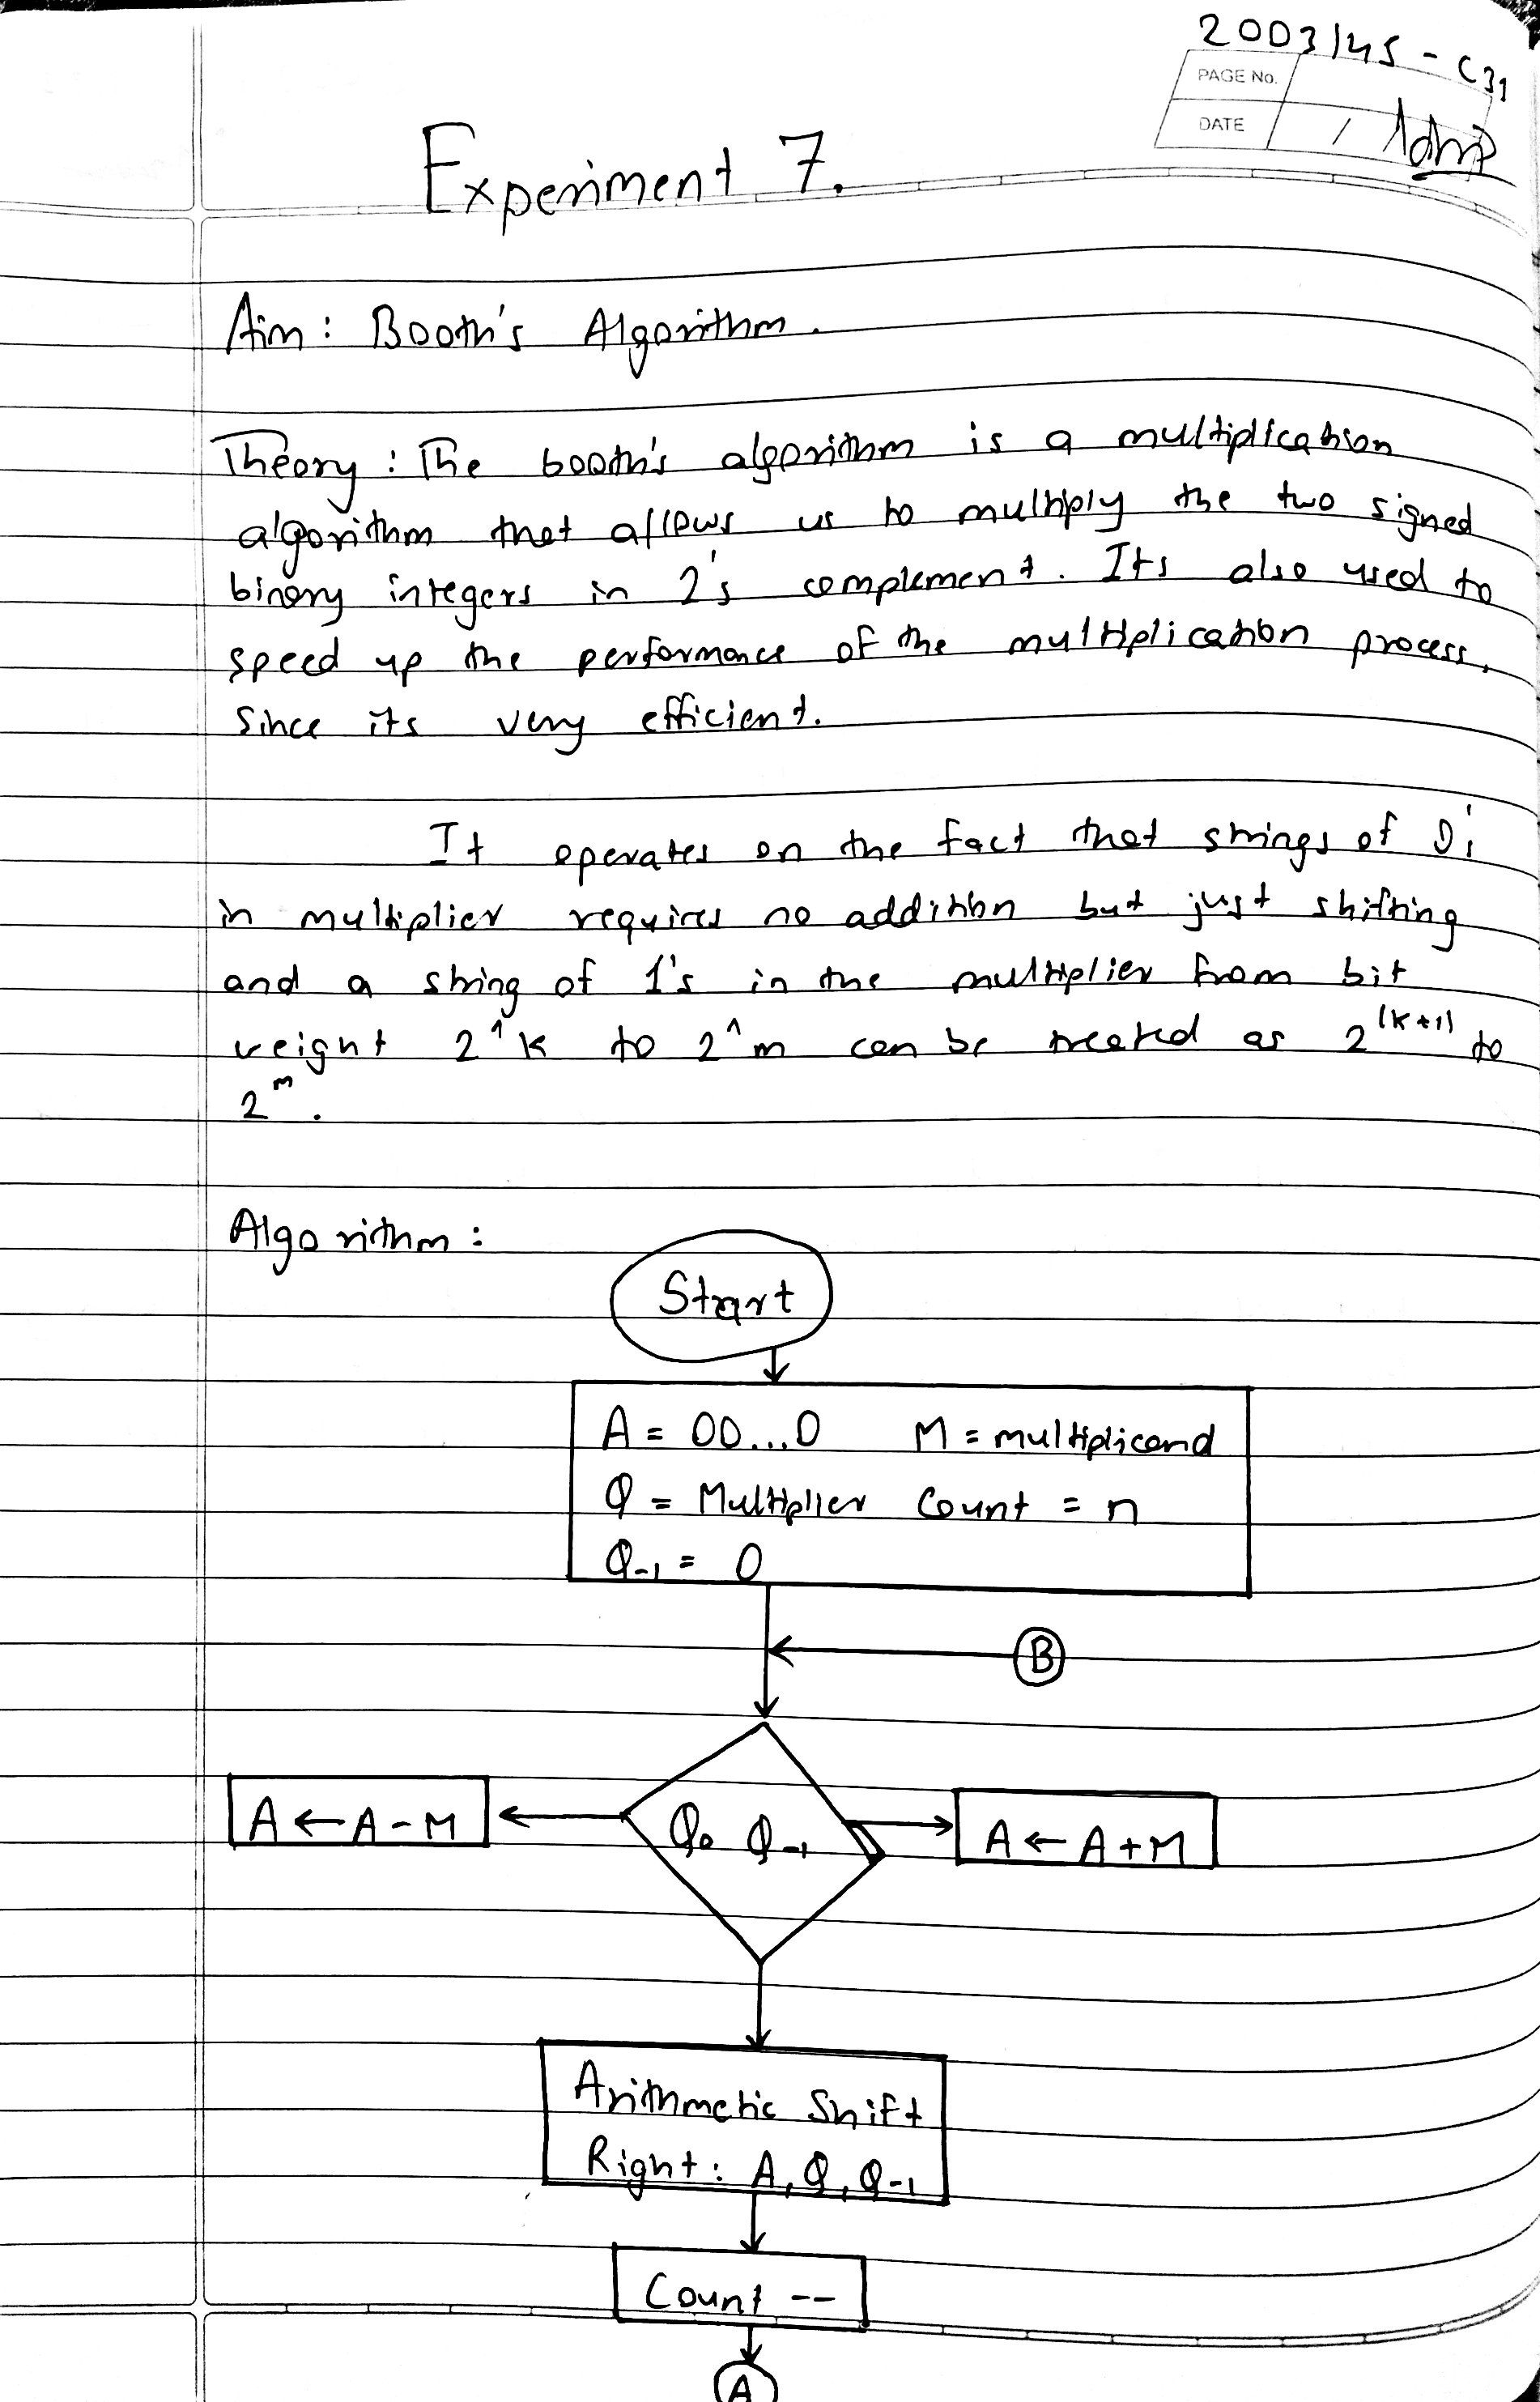 2003145 - C31
PAGE No.
DATE /
Experiment 7.
Aim : Booth's Algorithm.
Theory : The booth's algorithm is a multiplication
algorithm that allows us to multiply the two signed
binary integers in 2's complement. Its also used to
speed up the performance of the multiplication process,
since its very efficient.
It operates on the fact that strings of 0's
in multiplier requires no addition but just shifting
and a string of 1's in the multiplier from bit
weight 2^k to 2^m can be treated as 2^(k+1) to
2^m.
Algorithm :
Start
A = 00...0 M = multiplicand
Q = Multiplier Count = n
Q-1 = 0
B
A ← A - M Q0 Q-1 A ← A + M
Arithmetic Shift
Right : A, Q, Q-1
Count --
A